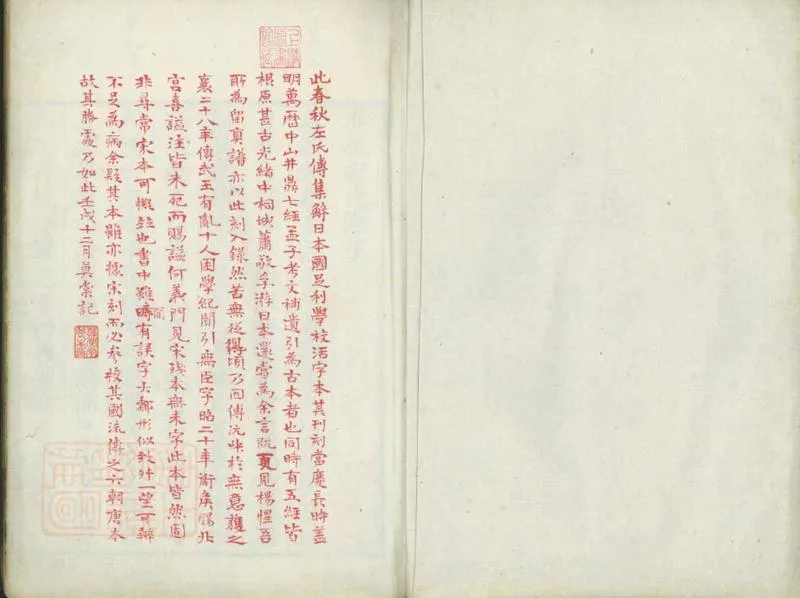 此春秋左氏傳集解日本國足利學校活字本其刊刻當慶長時蓋
明萬曆中山井鼎七經孟子考文補遺引為古本者也同時有五經皆
根原甚古光緒中桐城蕭敬孚游日本還嘗為余言既見楊惺吾
所為留真譜亦以此刻入錄然苦無從得頃乃因傅沅叔於無意獲之
襄二十八年傳武王有亂十人困學紀聞引無臣字昭二十年衛矦賜北
宮喜謚注皆未死而賜謚何義門見宋殘本無未字此本皆然固
非尋常宋本可擬竝也書中雖時有誤字大都形似致舛一望可辨
不足為病余疑其本雖亦據宋刻而必參校其國流傳之六朝唐本
故其勝處乃如此壬戌十二月莫棠記